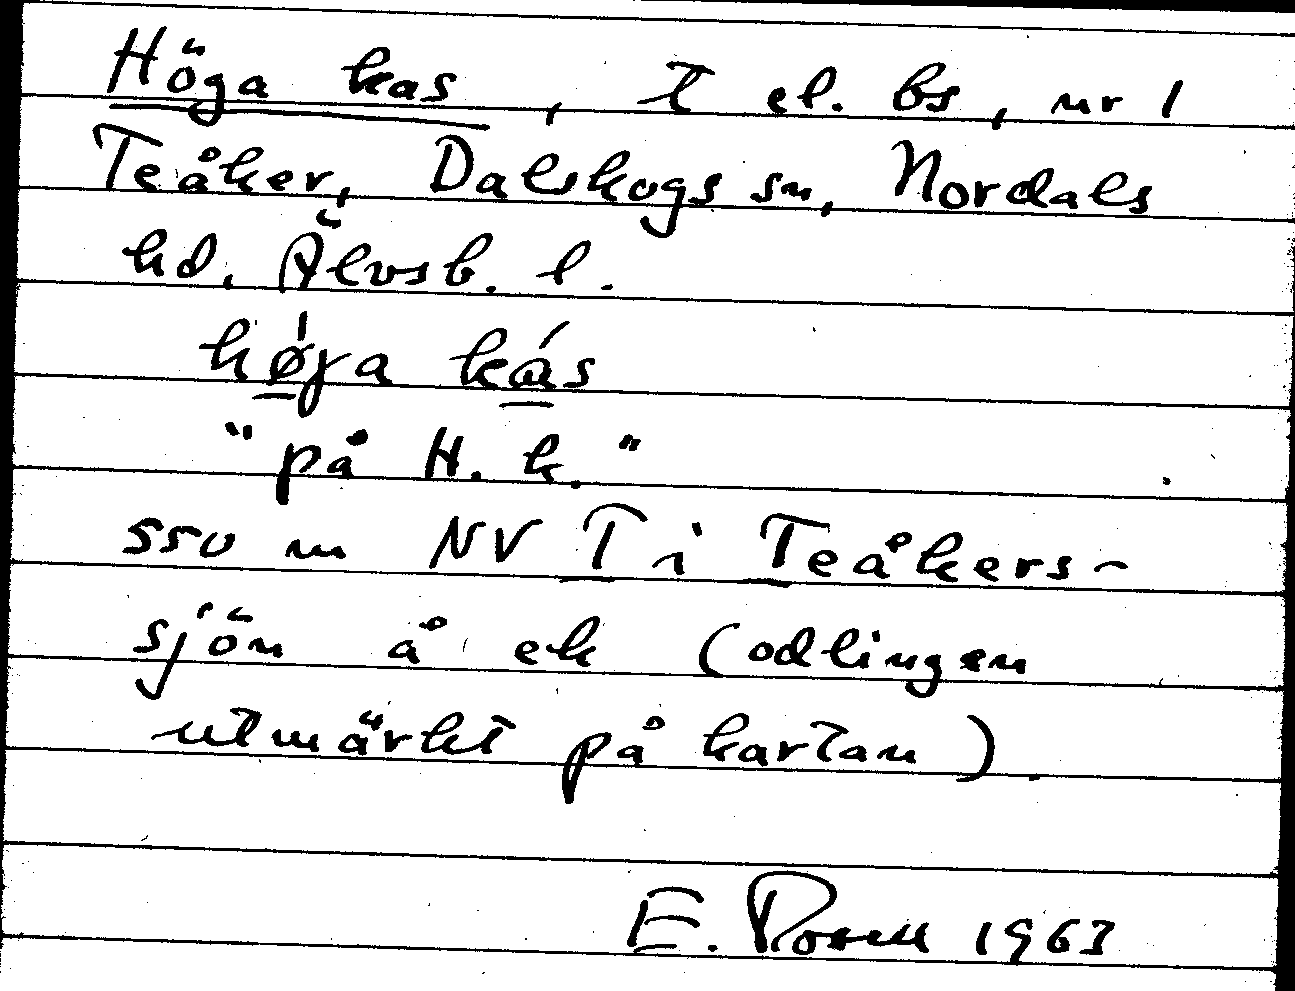 Höga kas, t el. bs, nr 1
Teåker, Dalskogs sn, Nordals
hd. Älvsb. l.
hǿ̲ga ká̲s
"på H. k."
550 m NV T i Teåkers-
sjön å ek (odlingen
utmärkt på kartan).
E. Rosell 1963